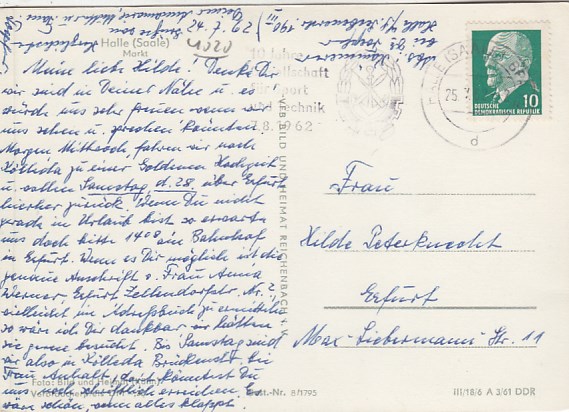 Halle (Saale)
Markt
4020
Meine liebe Hilde! Denke Dir
wir sind in Deiner Nähe u. es
würde uns sehr freuen wenn wir
uns sehen u. sprechen könnten.
Morgen Mittwoch, fahren wir nach
Kölleda zu einer Goldenen Hochzeit
u. wollen Samstag d. 28. über Erfurt
hierher zurück. Wenn Du nicht
gerade in Urlaub bist so erwarte
uns doch bitte 1408 am Bahnhof
in Erfurt. Wenn es Dir möglich ist die
genaue Anschrift v. Frau Anna
Werner, Erfurt
vielleicht im Adreßbuch zu ermitteln
so wäre ich Dir dankbar wir hätten
sie gerne besucht. Bis Samstag sind
wir also in Kölleda Brückenstr. bei
Frau Anhalt, dort könntest Du
uns noch schriftlich erreichen. Es
wäre schön, wenn alles klappt.
Foto: Bild und Heimat
Best.-Nr. 8/1795
VEB BILD UND HEIMAT REICHENBACH i. V.
10 Jahre
Gesellschaft
für Sport
und Technik
7.8.1962
HALLE (SAALE)
25.
d
DEUTSCHE
DEMOKRATISCHE REPUBLIK
10
Frau
Hilde Peterknecht
Erfurt
Max-Liebermann-Str. 11
III/18/6 A 3/61 DDR